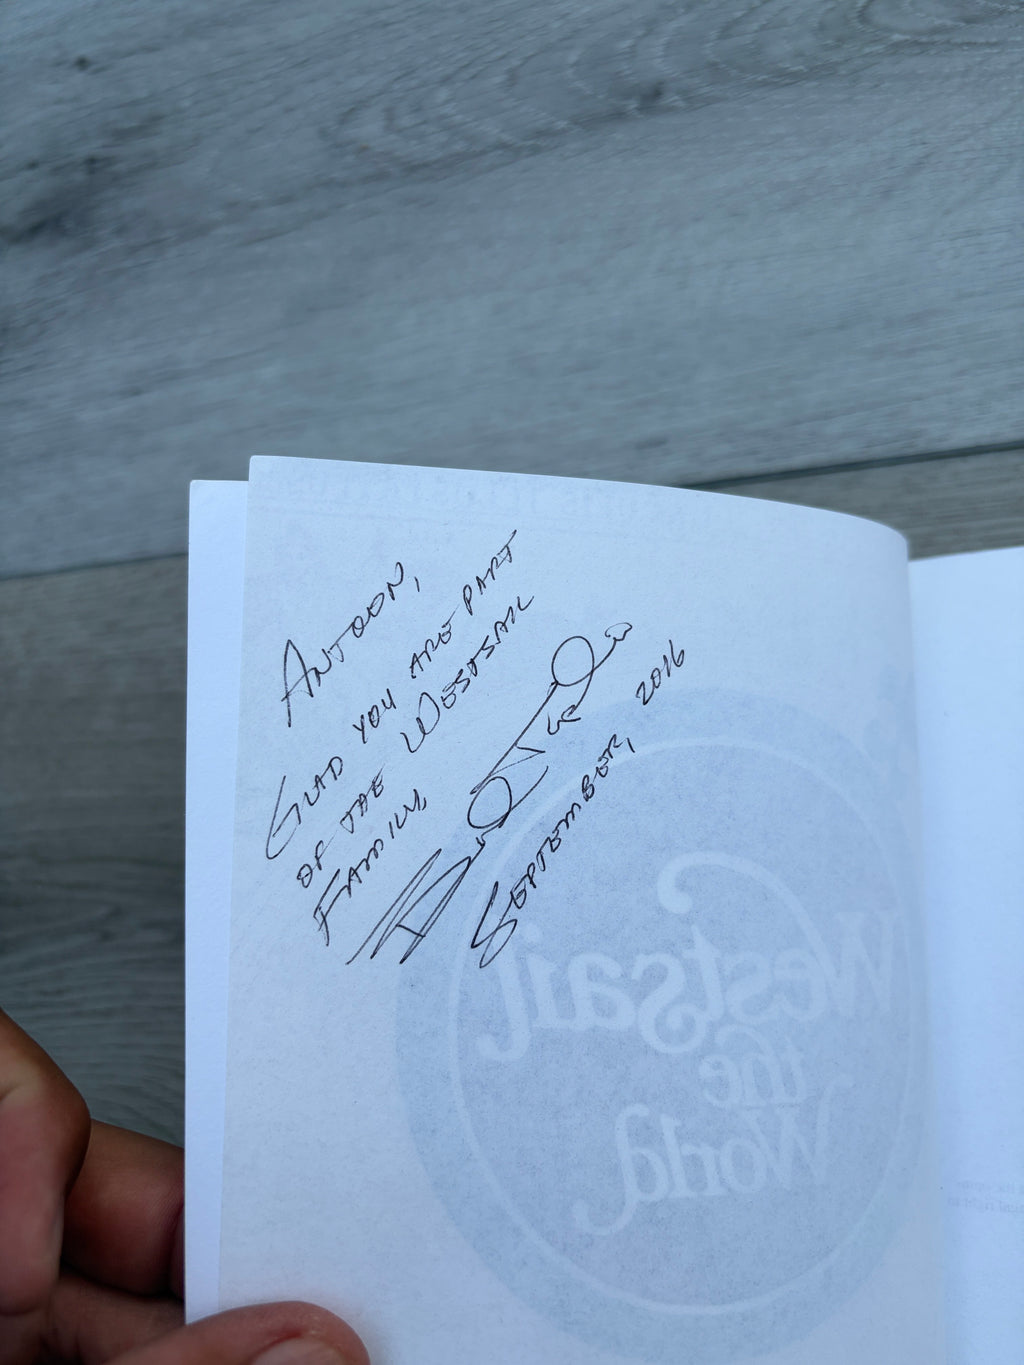 Antoon,
Glad you are part
of the Westsail
Family,
September, 2016
Westsail
the
World